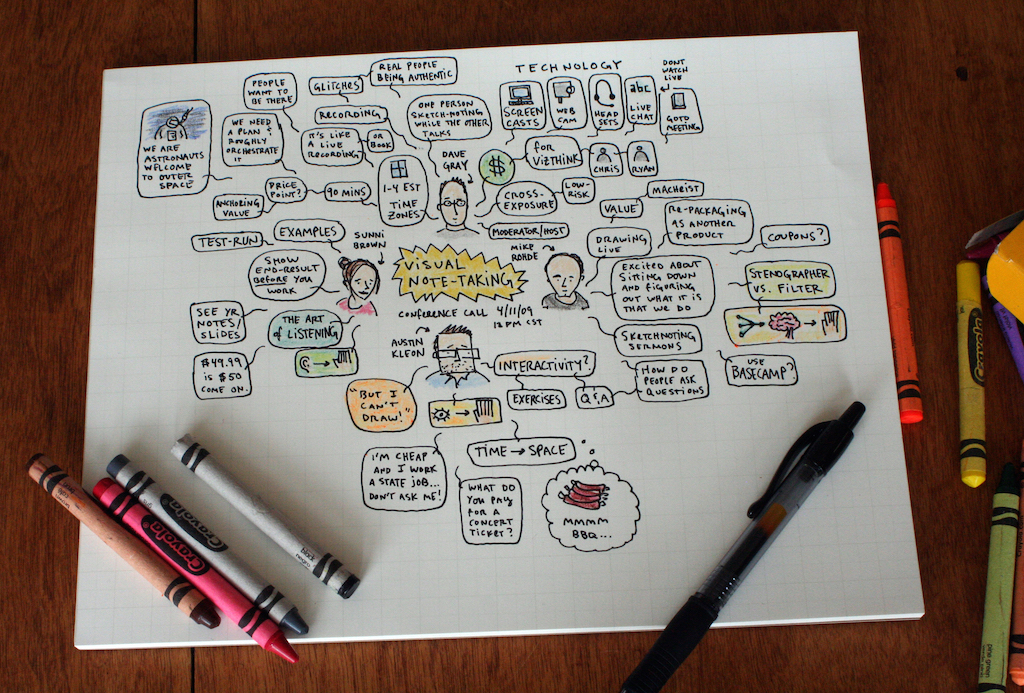 WE ARE
ASTRONAUTS
WELCOME
TO OUTER
SPACE
PEOPLE
WANT TO
BE THERE
GLITCHES
REAL PEOPLE
BEING AUTHENTIC
RECORDING
WE NEED
A PLAN &
ROUGHLY
ORCHESTRATE
IT
IT'S LIKE
A LIVE
RECORDING
OR
BOOK
ONE PERSON
SKETCH-NOTING
WHILE THE OTHER
TALKS
TECHNOLOGY
SCREEN
CASTS
WEB
CAM
HEAD
SETS
abc
LIVE
CHAT
DON'T
WATCH
LIVE
GOTO
MEETING
$
FOR
VIZTHINK
CHRIS
RYAN
DAVE
GRAY
1-4 EST
TIME
ZONES
90 MINS
PRICE
POINT?
ANCHORING
VALUE
CROSS-
EXPOSURE
LOW-
RISK
MODERATOR/HOST
MACHEIST
VALUE
RE-PACKAGING
AS ANOTHER
PRODUCT
COUPONS?
DRAWING
LIVE
EXAMPLES
TEST-RUN
SUNNI
BROWN
SHOW
END-RESULT
BEFORE YOU
WORK
SEE YR
NOTES/
SLIDES
THE ART
of LISTENING
$49.99
IS $50
COME ON.
VISUAL
NOTE-TAKING
CONFERENCE CALL 4/11/09
12 PM CST
MIKE
ROHDE
EXCITED ABOUT
SITTING DOWN
AND FIGURING
OUT WHAT IT IS
THAT WE DO
STENOGRAPHER
VS. FILTER
SKETCHNOTING
SERMONS
USE
BASECAMP?
AUSTIN
KLEON
"BUT I
CAN'T
DRAW!"
INTERACTIVITY?
EXERCISES
Q & A
HOW DO
PEOPLE ASK
QUESTIONS
I'M CHEAP
AND I WORK
A STATE JOB...
DON'T ASK ME!
TIME → SPACE
WHAT DO
YOU PAY
FOR A
CONCERT
TICKET?
MMMM
BBQ...
Crayola
Crayola
black
negro
Crayola
pine green